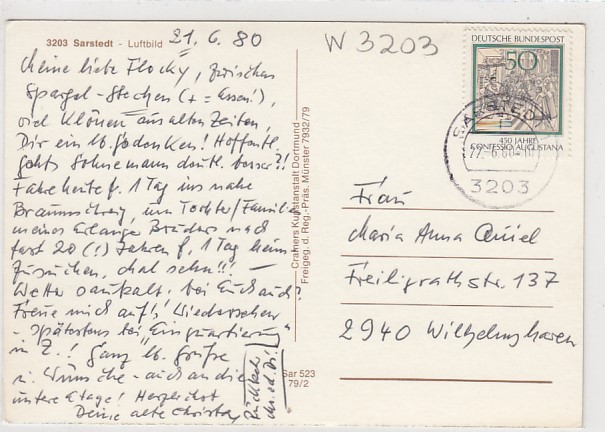 3203 Sarstedt - Luftbild
21.6.80
W 3203
DEUTSCHE BUNDESPOST
50
450 JAHRE
CONFESSIO AUGUSTANA
SARSTEDT
22.-6.80
3203
Meine liebe Flocky, zwischen
Spargel-Stechen (+ = Essen!),
viel Klönen aus alten Zeiten,
Dir ein lb. Gedenken! Hoffentl.
gehts Sohnemann deutl. besser?!
Fahre heute f. 1 Tag ins nahe
Braunschweig, um Tochter/Familie
meines Bruders nach
fast 20 (!) Jahren f. 1 Tag
Mal sehn!!! -
Wetter saukalt, bei Euch auch?
Freue mich auf's Wiedersehen
- spätestens bei "Einquartierung"
in Z.! Ganz lb. Grüße
u. Wünsche - auch an die
untere Etage! Herzlichst
Deine alte Christa
Cramers Kunstanstalt Dortmund
Freigeg. d. Reg.-Präs. Münster 7932/79
Sar 523
79/2
Frau
Maria Anna
Freiligrathstr. 137
2940 Wilhelmshaven